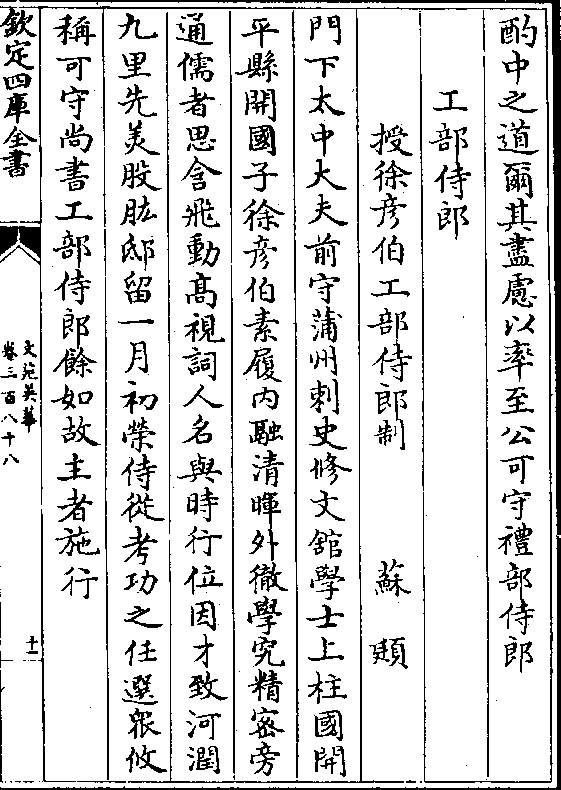 酌中之道爾其盡慮以率至公可守禮部侍郎
工部侍郎
授徐彦伯工部侍郎制 蘇頲
門下太中大夫前守蒲州刺史修文館學士上柱國開
平縣開國子徐彦伯素履内融清暉外徹學究精密旁
通儒者思含飛動髙視詞人名與時行位因才致河潤
九里先美股肱邸留一月初榮侍從考功之任選衆攸
稱可守尚書工部侍郎餘如故主者施行
欽定四庫全書
文苑英華
卷三百八十八
十一